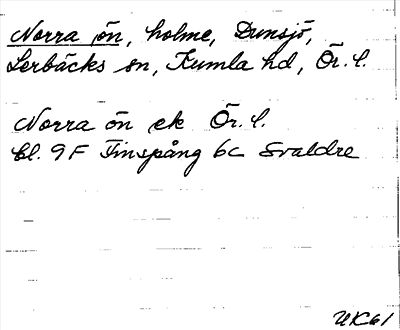 Norra ön, holme, Dunsjö,
Lerbäcks sn, Kumla hd, Ör. l.
Norra ön ek Ör. l.
bl. 9F Finspång 6c Svaldre
UK61